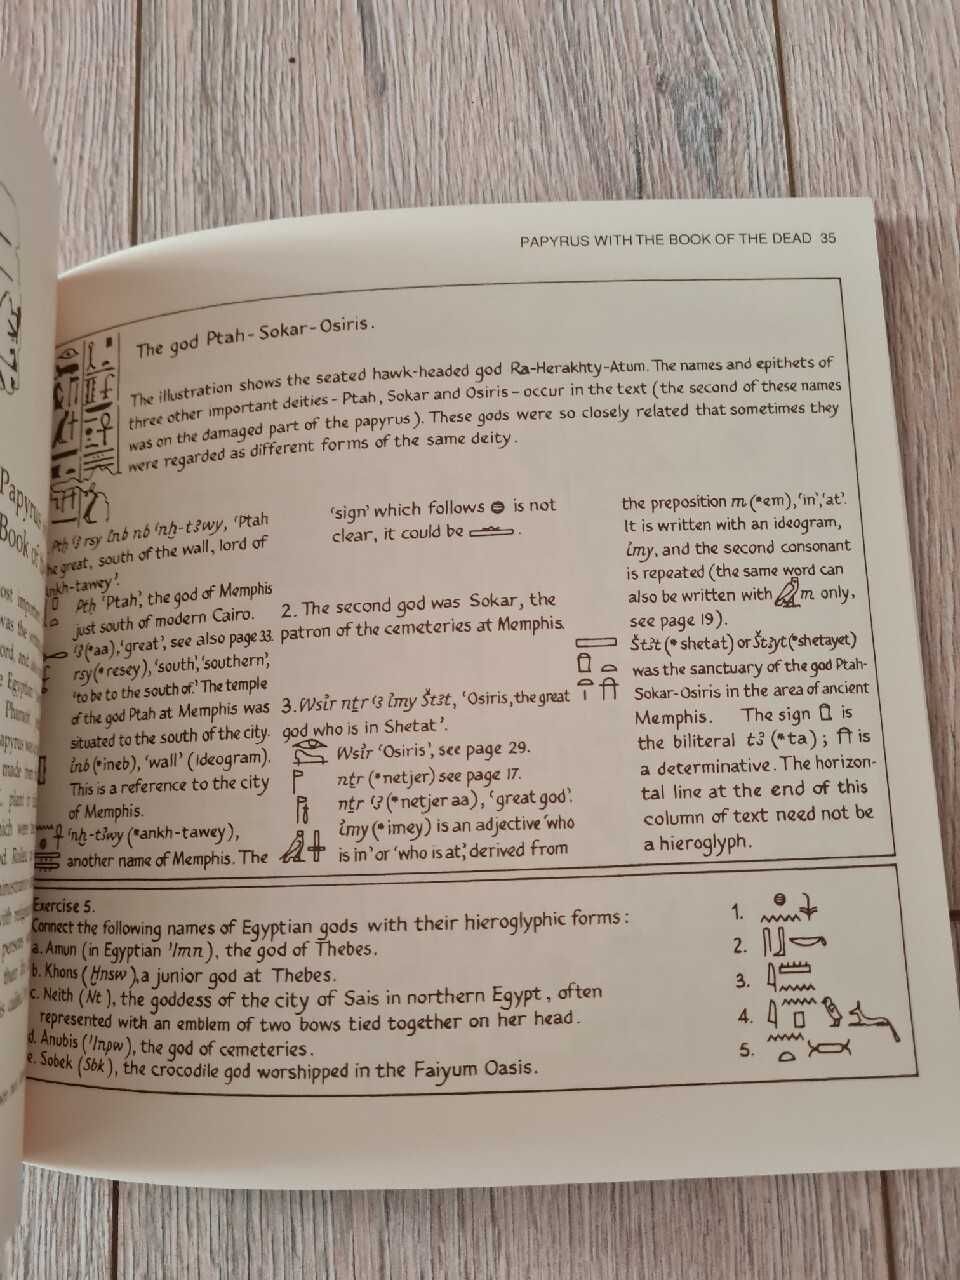 PAPYRUS WITH THE BOOK OF THE DEAD 35
The god Ptah-Sokar-Osiris.
The illustration shows the seated hawk-headed god Ra-Herakhty-Atum. The names and epithets of
three other important deities - Ptah, Sokar and Osiris - occur in the text (the second of these names
was on the damaged part of the papyrus). These gods were so closely related that sometimes they
were regarded as different forms of the same deity.
Ptḥ ꜥꜣ rsy ỉnb nb ꜥnḫ-tꜣwy, 'Ptah
the great, south of the wall, lord of
Ankh-tawey'.
Ptḥ 'Ptah', the god of Memphis
just south of modern Cairo.
ꜥꜣ (*aa), 'great', see also page 33.
rsy (*resey), 'south', 'southern',
'to be to the south of.' The temple
of the god Ptah at Memphis was
situated to the south of the city.
ỉnb (*ineb), 'wall' (ideogram).
This is a reference to the city
of Memphis.
ꜥnḫ-tꜣwy (*ankh-tawey),
another name of Memphis. The
'sign' which follows 𓐍 is not
clear, it could be .
2. The second god was Sokar, the
patron of the cemeteries at Memphis.
3. Wsỉr nṯr ꜥꜣ ỉmy Štꜣt, 'Osiris, the great
god who is in Shetat'.
Wsỉr 'Osiris', see page 29.
nṯr (*netjer) see page 17.
nṯr ꜥꜣ (*netjer aa), 'great god'.
ỉmy (*imey) is an adjective 'who
is in' or 'who is at', derived from
the preposition m (*em), 'in', 'at'.
It is written with an ideogram,
ỉmy, and the second consonant
is repeated (the same word can
also be written with 𓅓 m only,
see page 19).
Štꜣt (*shetat) or Štꜣyt (*shetayet)
was the sanctuary of the god Ptah-
Sokar-Osiris in the area of ancient
Memphis. The sign is
the biliteral tꜣ (*ta); is
a determinative. The horizon-
tal line at the end of this
column of text need not be
a hieroglyph.
Exercise 5.
Connect the following names of Egyptian gods with their hieroglyphic forms:
a. Amun (in Egyptian 'Imn), the god of Thebes.
b. Khons (Ḫnsw), a junior god at Thebes.
c. Neith (Nt), the goddess of the city of Sais in northern Egypt, often
represented with an emblem of two bows tied together on her head.
d. Anubis ('Inpw), the god of cemeteries.
e. Sobek (Sbk), the crocodile god worshipped in the Faiyum Oasis.
1. 𓐍𓈖𓇓
2. 𓋴𓃀𓎡
3. 𓇋𓏠𓈖
4. 𓇋𓈖𓊪𓅱
5. 𓈖𓏏